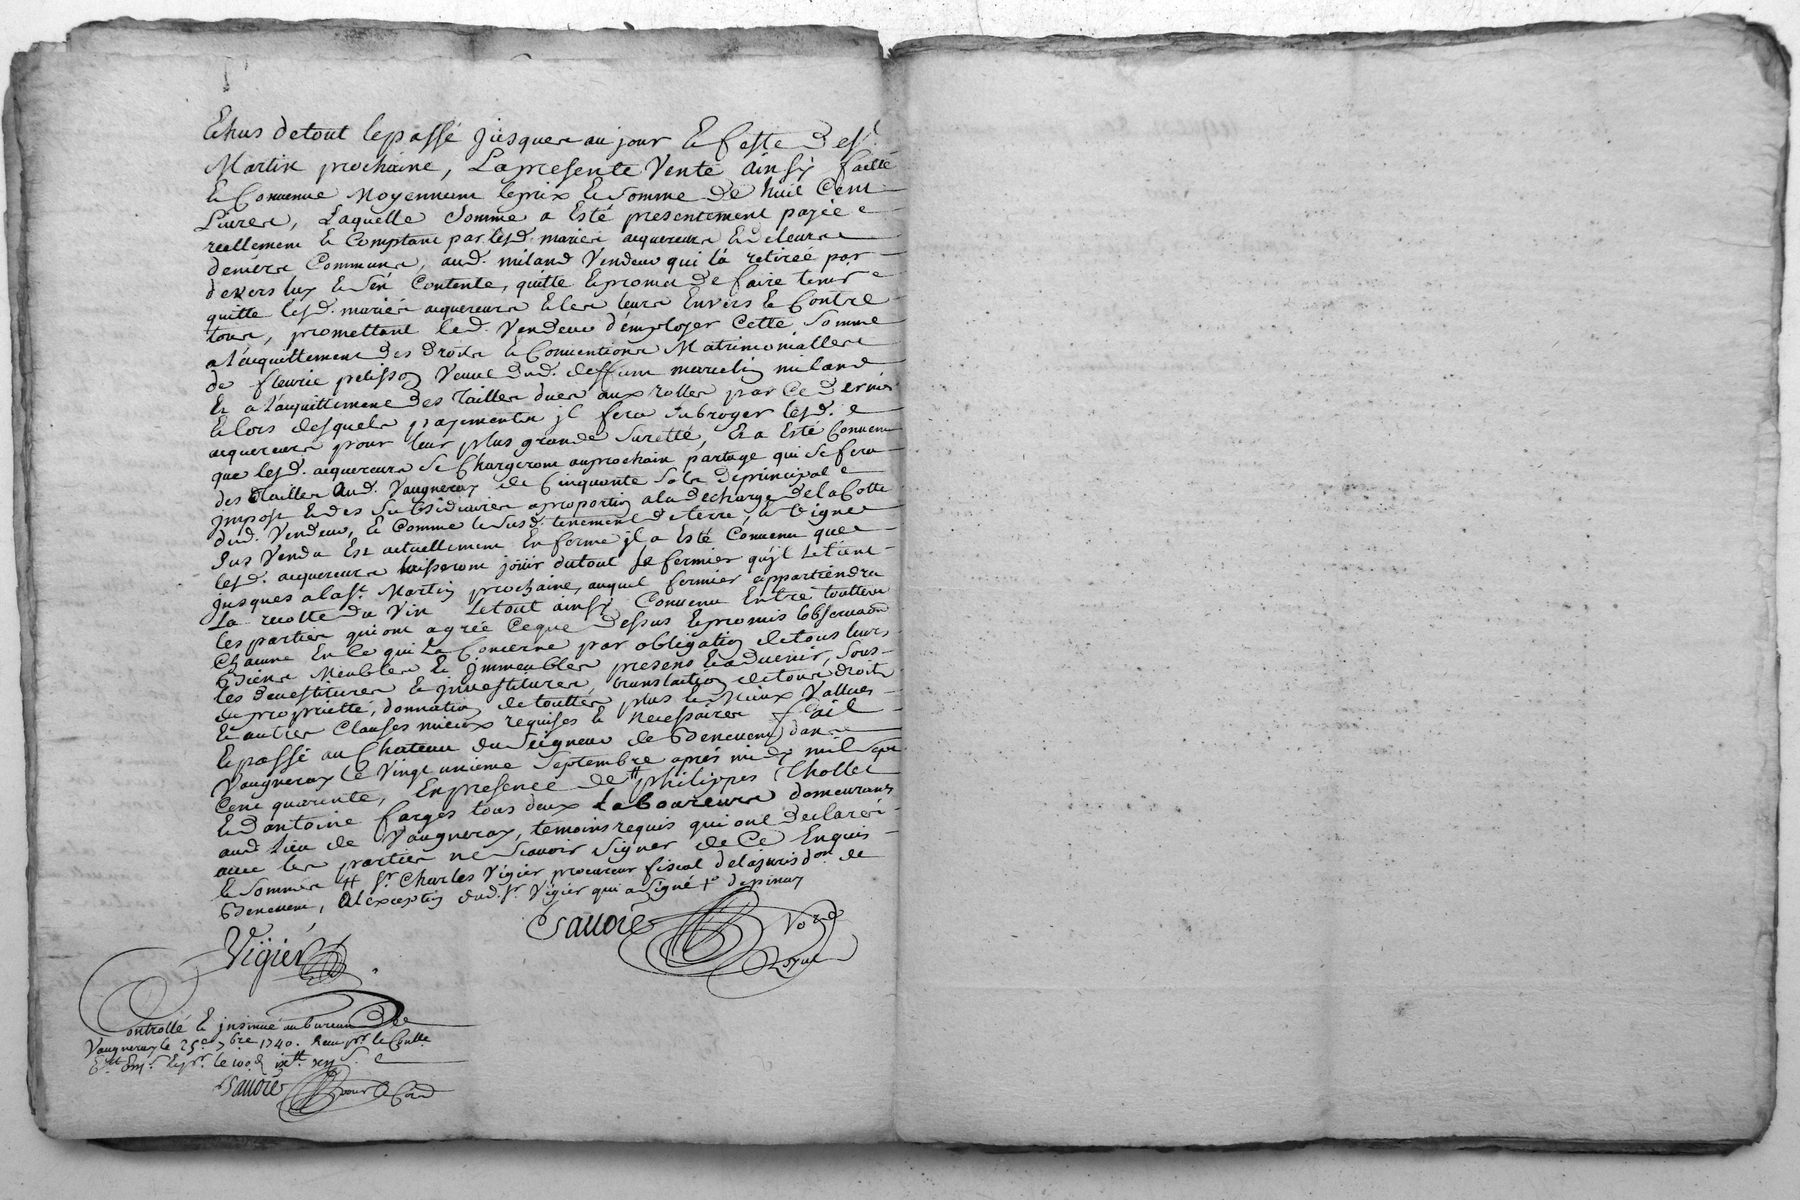 Echus de tout le passé jusques au jour & feste de St.
Martin prochaine, La presente Vente ainsÿ faitte
& Convenue Moyennant le prix & Somme de huit Cent
Livres, Laquelle Somme a Esté presentement payée
reellement & Comptant par lesd. mariés acquereurs Et de leurs
deniers Communs, aud. miland Vendeur qui la retirée par
devers luy & s'en Contente, quitte & promet de faire tenir
quitte lesd. mariés acquereurs & les leurs Envers & Contre
tous, promettant led. Vendeur d'employer Cette Somme
a l'acquittement des droits & Conventions Matrimonialles
de fleurie pelisson Veuve dud. deffunt marcelin miland
Et a l'acquittement des Tailles dues aux rolles par Ce dernier
& lors desquels payements jl fera Subroger lesd.
acquereurs pour leur plus grande Suretté, Et a Esté Convenu
que lesd. acquereurs Se Chargeront au prochain partage qui Se fera
des Tailles Aud. Vaugneray de Cinquante Sols de principal
jmpost & des Subsidiaires a proportion a la decharge de la Cotte
dud. Vendeur, & Comme le Susd. tenement de terre, & Vigne
Sus Vendu Est actuellement En ferme jl a Esté Convenu que
lesd. acquereurs laisseront joüir du tout le fermier qu'jl tient
jusques a la St. Martin prochaine, auquel fermier appartiendra
La recolte du Vin Le tout ainsÿ Convenu Entre touttes
les parties qui ont agréé Ceque dessus & promis l'observaon
Chacune En Ce qui La Concerne par obligation de tous leurs
Biens Meubles & jmmeubles presens & advenir, Sous
les devestitures & jnvestitures, translation de tous droits
de proprietté, donnation de touttes plus & mieux Vallues
& autres Clauses mieux requises & Necessaires fait
& passé au Chateau du Seigneur de Benevent dans
Vaugneray le Vingt unieme Septembre après midy mil Sept
Cent quarente, En presence de ++ philippes Thollet
& d'antoine farges tous deux Laboureurs demeurants
aud. Lieu de Vaugneray, temoins requis qui ont declaréz
avec les parties ne Scavoir Signer de Ce Enquis
& Sommés ++ Sr. Charles Vigier procureur fiscal de la jurisdon. de
Benevent, A l'exception dud. Sr. Vigier qui a Signé
Savoié
Vigier
Controllé & jnsinué au bureau de
Vaugneray le 25e. 7bre 1740.
Savoié